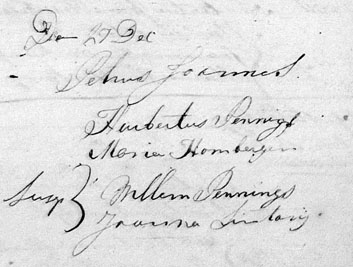 Den 27 Dec
Petrus Joannes.
Huibertus Pennings
Maria Hombergen
Susp Willem Pennings
Joanna